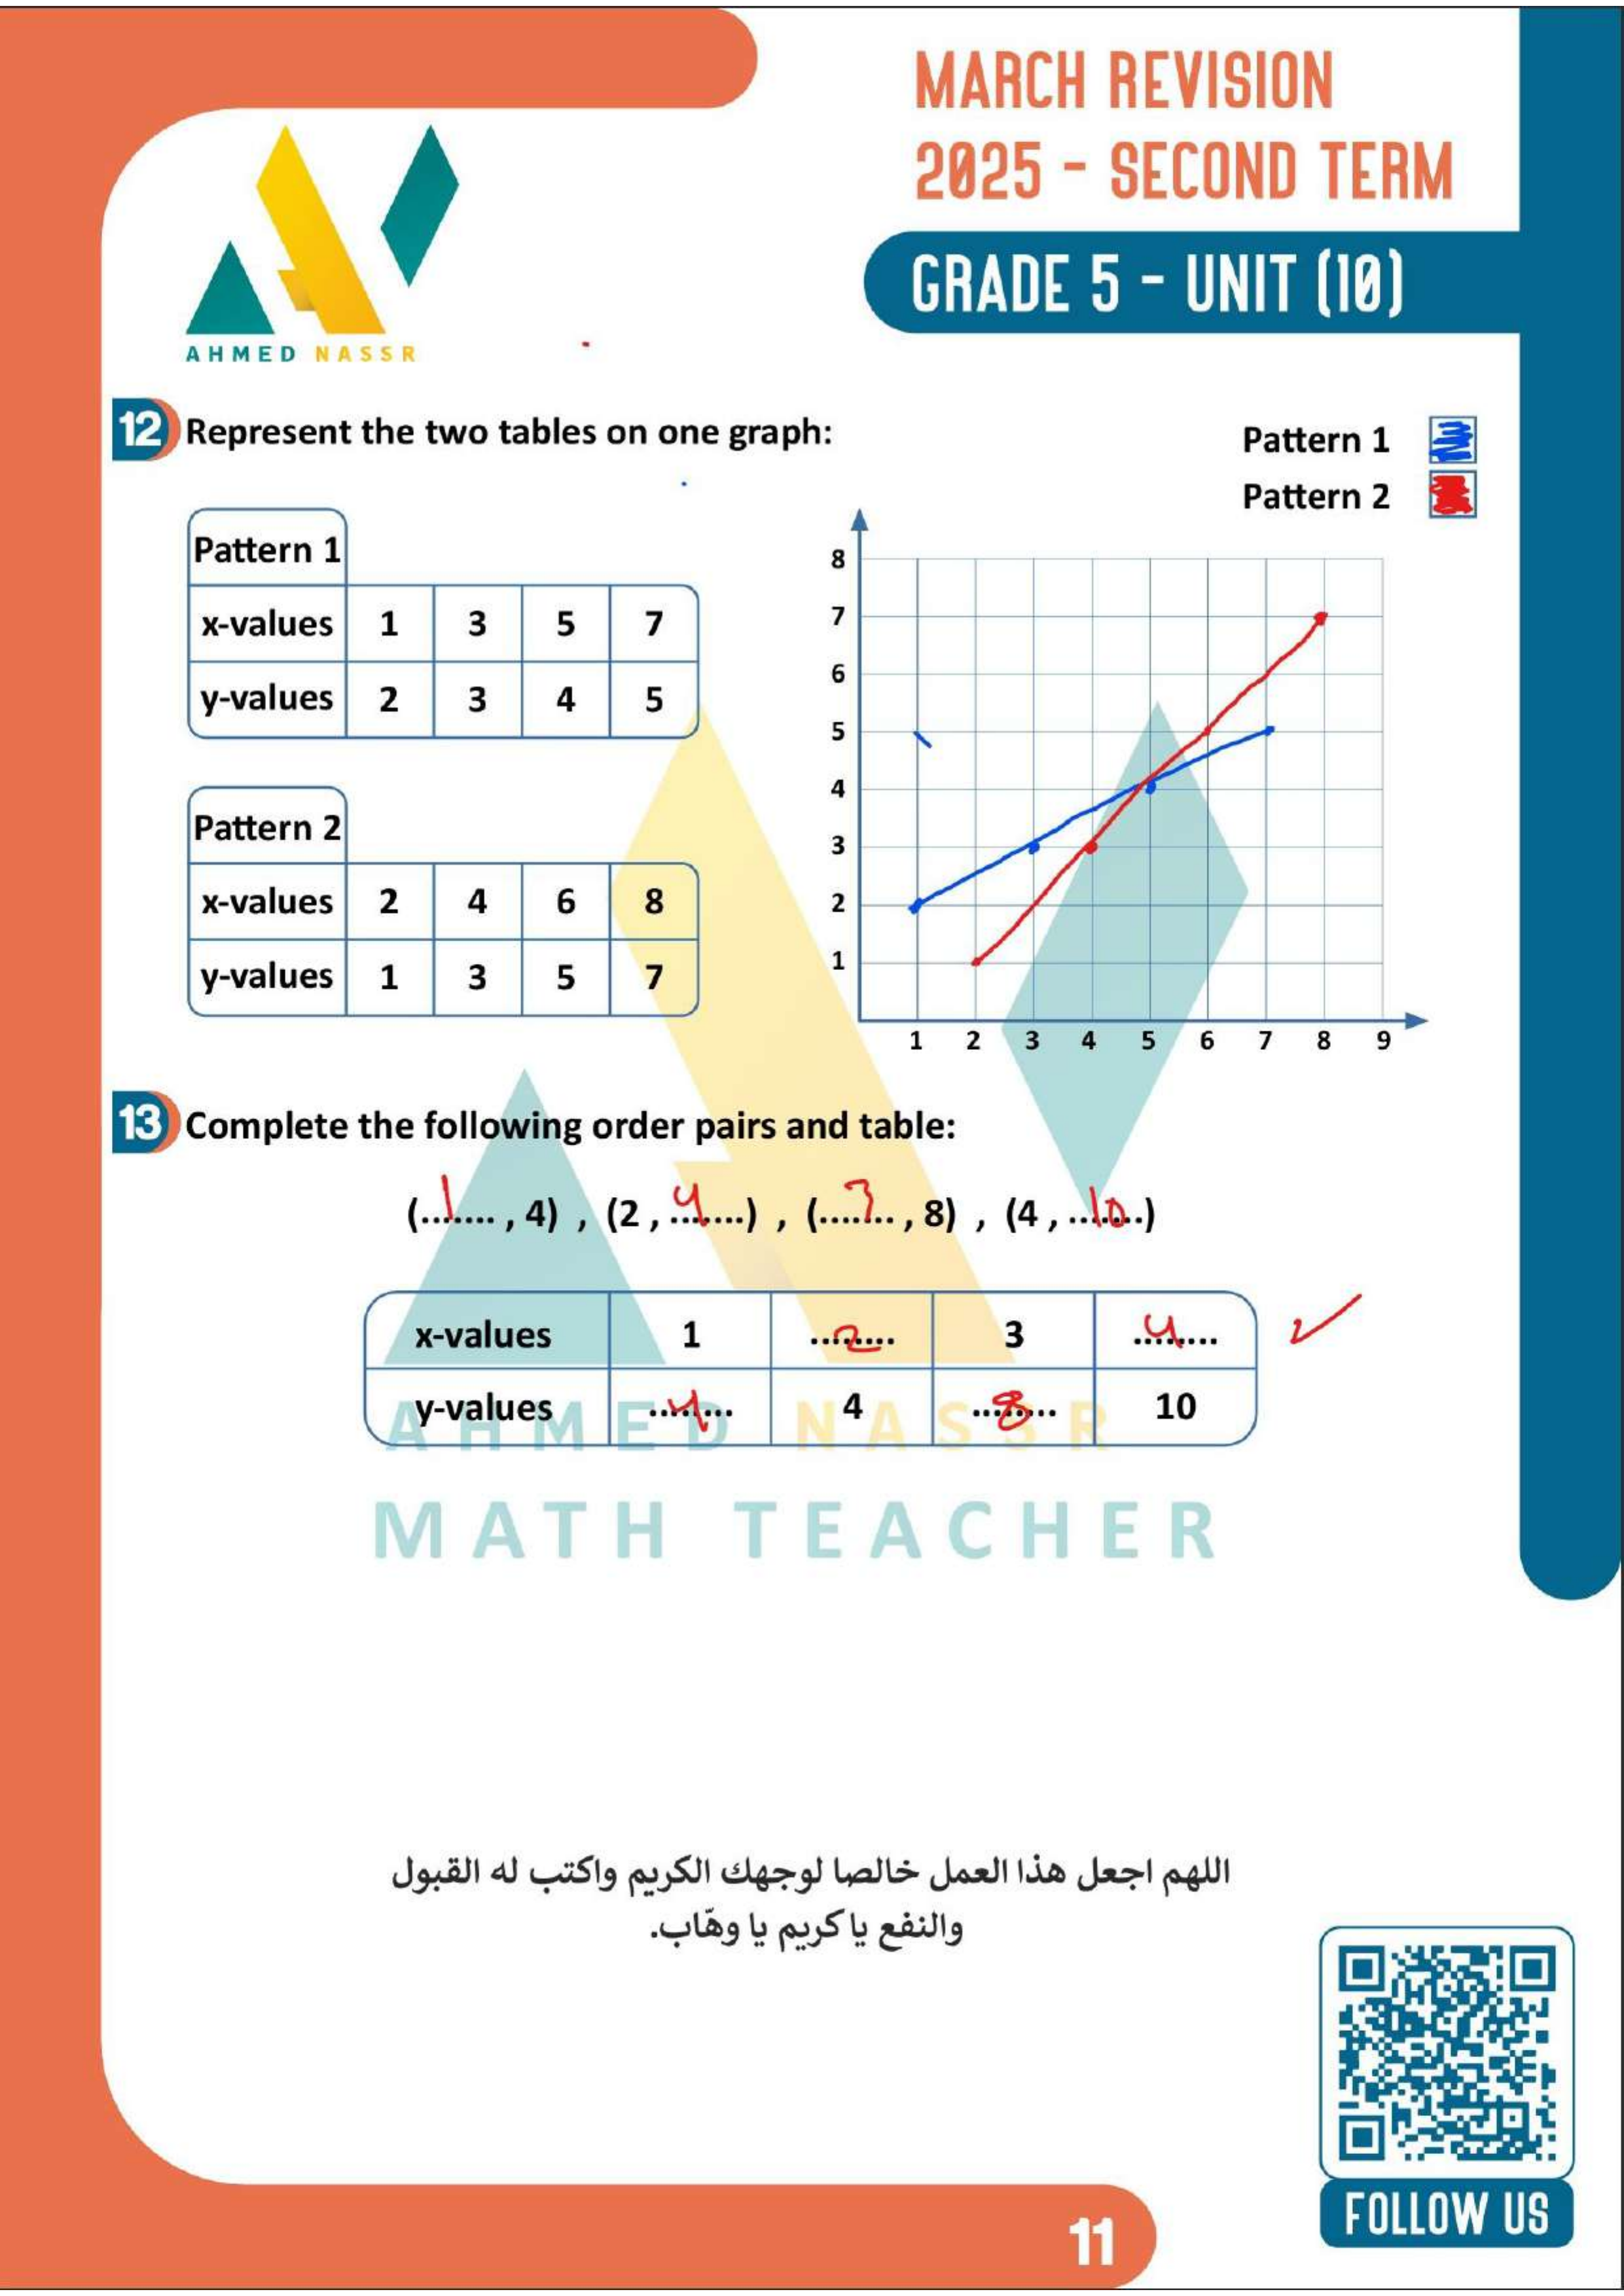 MARCH REVISION
2025 - SECOND TERM
GRADE 5 - UNIT (10)
AHMED NASSR
12 Represent the two tables on one graph:
Pattern 1
Pattern 2
Pattern 1
x-values 1 3 5 7
y-values 2 3 4 5
Pattern 2
x-values 2 4 6 8
y-values 1 3 5 7
8
7
6
5
4
3
2
1
1 2 3 4 5 6 7 8 9
13 Complete the following order pairs and table:
(...1... , 4) , (2 , ...4...) , (...3... , 8) , (4 , ...10...)
x-values 1 ...2... 3 ...4...
y-values ...4... 4 ...8... 10
AHMED NASSR
MATH TEACHER
اللهم اجعل هذا العمل خالصا لوجهك الكريم واكتب له القبول
والنفع يا كريم يا وهّاب.
FOLLOW US
11